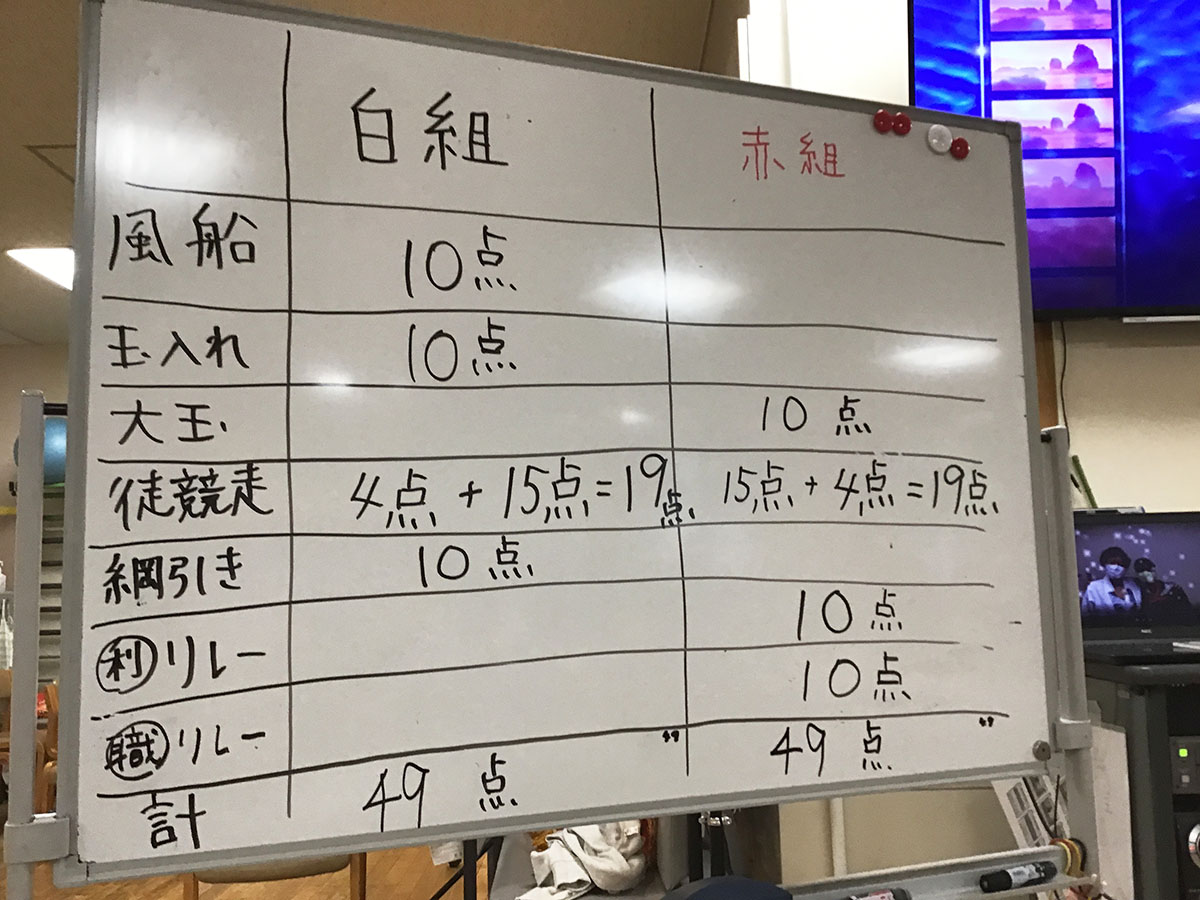 白組 赤組
風船 10点
玉入れ 10点
大玉 10点
徒競走 4点+15点=19点 15点+4点=19点
綱引き 10点
利リレー 10点
職リレー 10点
計 49点 49点